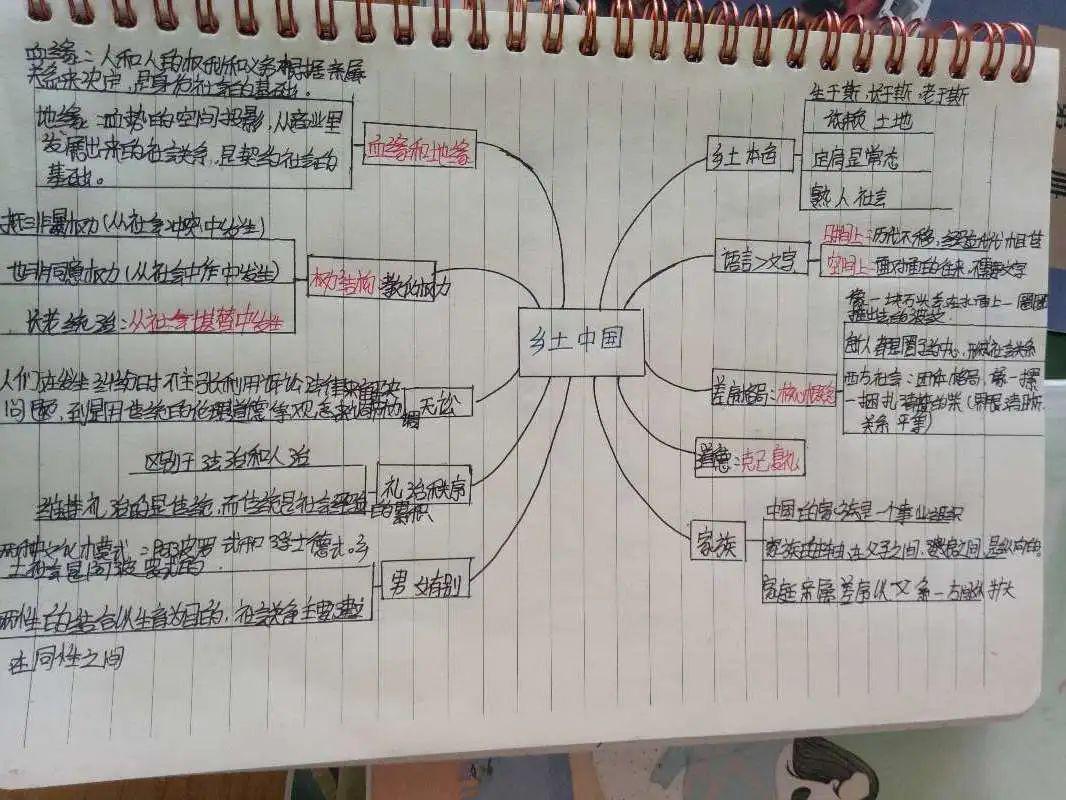 乡土中国
血缘和地缘
血缘：人和人的权利和义务根据亲属
关系来决定，是身份社会的基础。
地缘：血缘的空间投影，从商业里
发展出来的社会关系，是契约社会的
基础。
权力结构 教化权力
非暴权力(从社会冲突中发生)
也非同意权力(从社会中作中发生)
长老统治：从社会继替中发生
无讼
人们在发生纠纷时不主张利用诉讼法律来解决
问题，利是用传统的伦理道德等观念来协调
礼治秩序
区别于法治和人治
维持礼治的是传统，而传统是社会经验
的累积
男女有别
两种文化模式：阿波罗式和浮士德式。乡
土社会是阿波罗式的
两性的结合以生育为目的，社会关系主要建立
在同性之间
乡土本色
生于斯、长于斯、老于斯
依赖土地
定居是常态
熟人社会
语言>文字
时间上：历代不移，
空间上：面对面的往来，不需要文字
差序格局：核心概念
像一块石头丢在水面上一圈圈
推出去的波纹
每人都是圈子的中心，形成社会关系
西方社会：团体格局，像一捆
一捆扎清楚的柴(界限清晰，
关系平等)
道德：克己复礼
家族
中国的家族是一个事业组织
家族的主轴在父子之间，婆媳之间，是纵向的。
家庭亲属差序以父系一方向外扩大